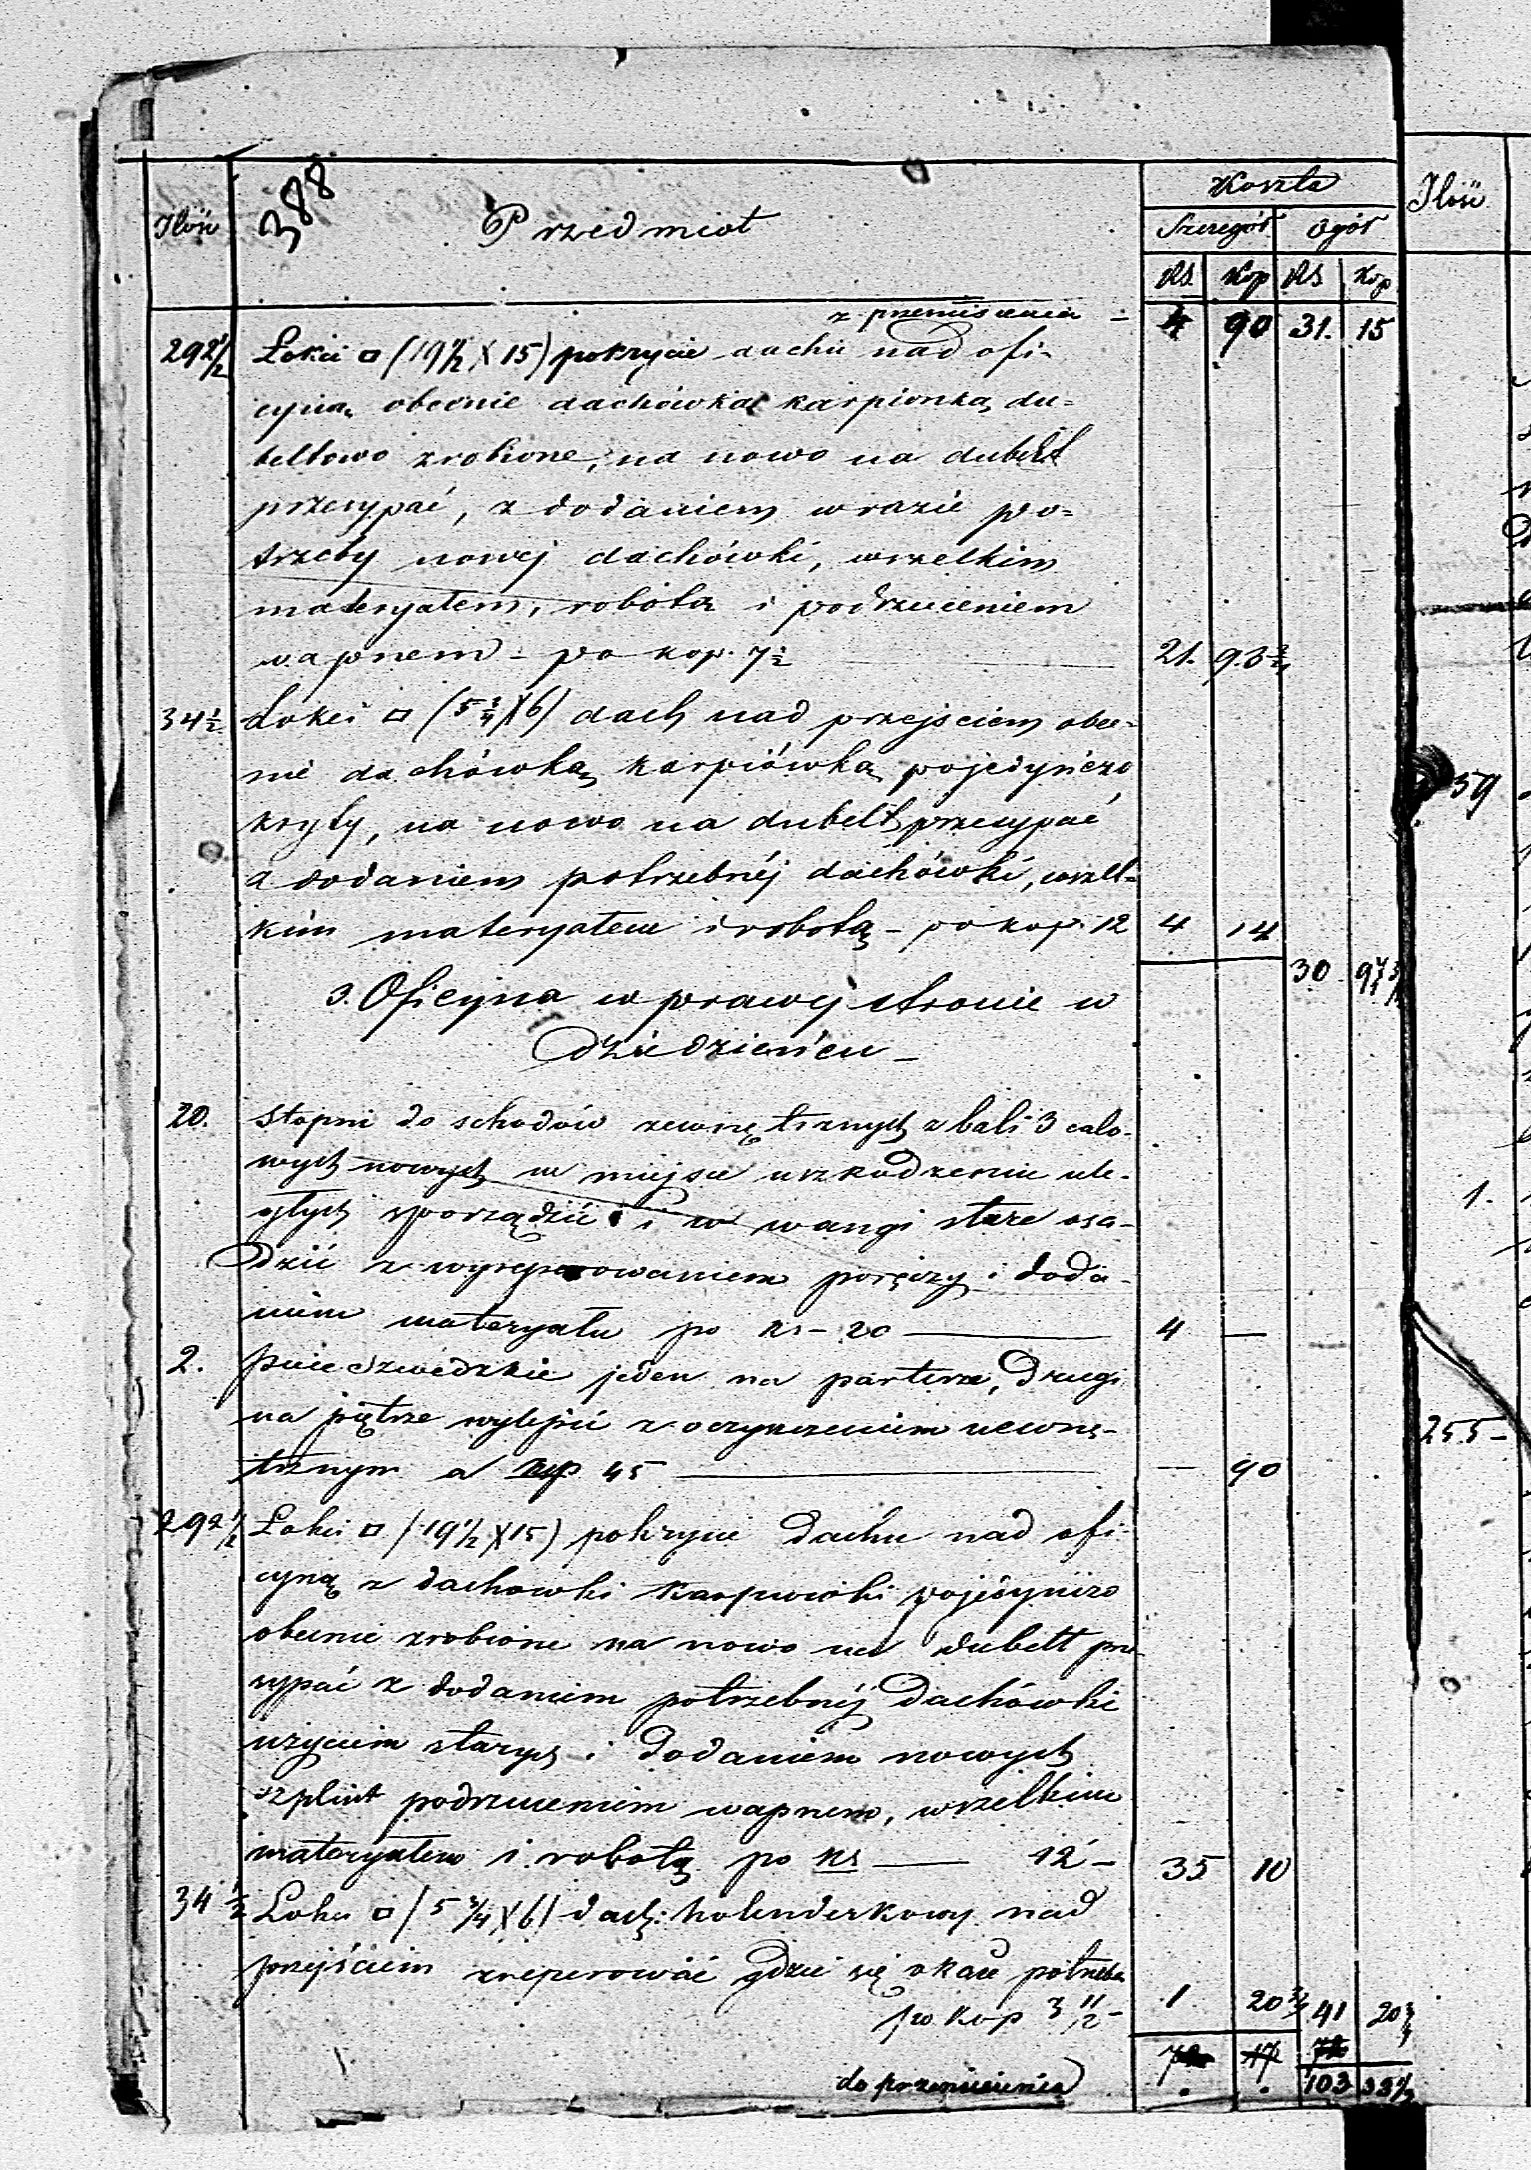 388
Koszta
Ilość Przedmiot Szczegół Ogół Ilość
RS Kop RS Kop
z przeniesienia - 4 90 31. 15
292½ Łokci □ (19½ X 15) pokrycie dachu nad ofi-
cyną obecnie dachówką karpiówką du-
beltowo zrobione, na nowo na dubelt
przesypać, z dodaniem w razie po-
trzeby nowej dachówki, wszelkim
materyałem, robotą i podrzuceniem
wapnem - po kop. 7½ 21. 93¾
34½ Łokci □ (5¾ X 6) dach nad przejściem obec-
nie dachówką karpiówką pojedyńczo
kryty, na nowo na dubelt przesypać
z dodaniem potrzebnéj dachówki, wszel-
kim materyałem i robotą - po kop. 12 4 14
30 97¾
3. Oficyna w prawej stronie w
Dziedzieńcu -
20. Stopni do schodów zewnętrznych z bali 3 calo-
wych nowych w miejsce uszkodzeniu ule-
głych sporządzić i w wangi stare osa-
dzić z wyreperowaniem poręczy i doda-
niem materyału po ks - 20 — 4 —
2. piece Szwedzkie jeden na parterze, drugi
na piętrze wylepić z oczyszczeniem wewnę-
trznym a kop 45 — — 90
292½ Łokci □ (19½ X 15) pokrycie Dachu nad ofi-
cyną z dachowki Karpiowki pojedyńczo
obecnie zrobione na nowo na dubelt prze-
sypać z dodaniem potrzebnéj Dachówki
użyciem starych i dodaniem nowych
szplint podrzuceniem wapnem, wszelkim
materyałem i robotą po ks — 12 - 35 10
34½ Łokci □ (5¾ X 6) dach holenderkowy nad
przejściem zreperować gdzie się okaże potrzeba
po kop 3½ - 1 20¾ 41 20¾
do przeniesienia 103 33½
59
1.
255 -